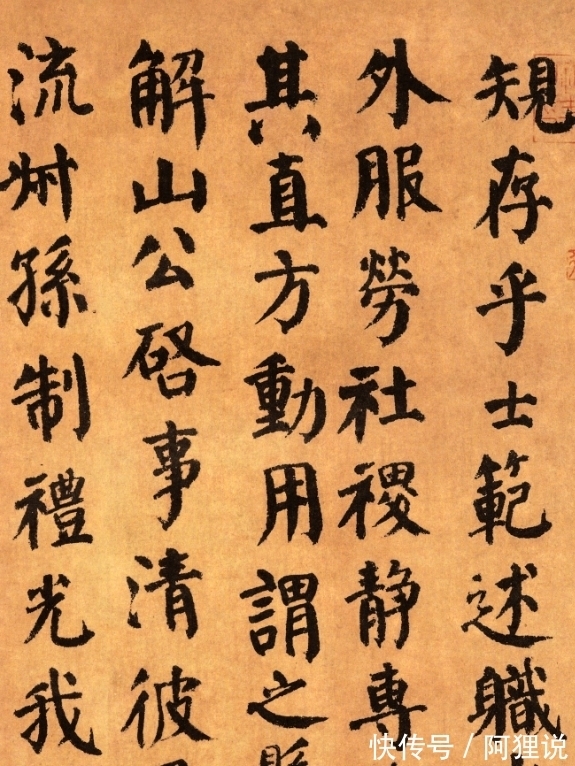 䂓存乎士範述職
外服勞社稷静専
其直方動用謂之
解山公啓事清彼
流州孫制禮光我
快传号 / 阿狸说